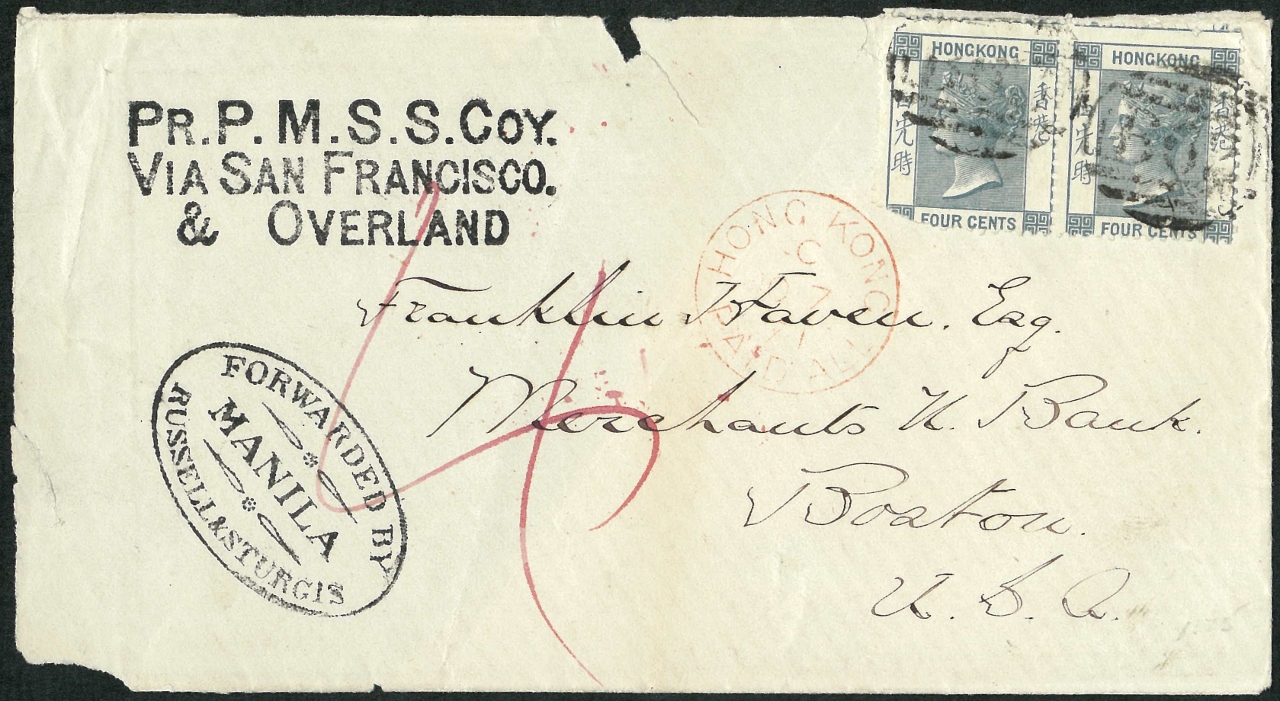 PR. P. M. S. S. COY.
VIA SAN FRANCISCO.
& OVERLAND
HONGKONG
香港
先時
FOUR CENTS
HONGKONG
香港
先時
FOUR CENTS
HONG KONG
C
PAID ALL
Franklin Haven, Esq.
Merchants N. Bank.
Boston.
U. S. A.
FORWARDED BY
MANILA
RUSSELL & STURGIS